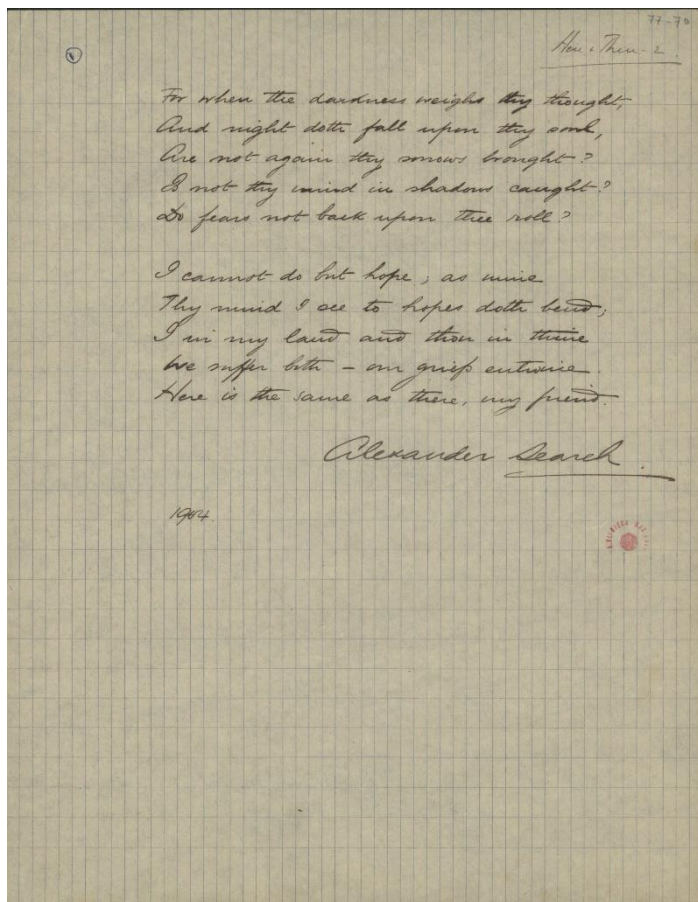 77-78
Here & There - 2.
For when the darkness weighs thy thought,
And night doth fall upon thy soul,
Are not again thy sorrows brought?
Is not thy mind in shadows caught?
Do fears not back upon thee roll?
I cannot do but hope; as mine
Thy mind I see to hopes doth bend;
I in my land and thou in thine
We suffer both – our griefs entwine.
Here is the same as there, my friend.
Alexander Search.
1904.